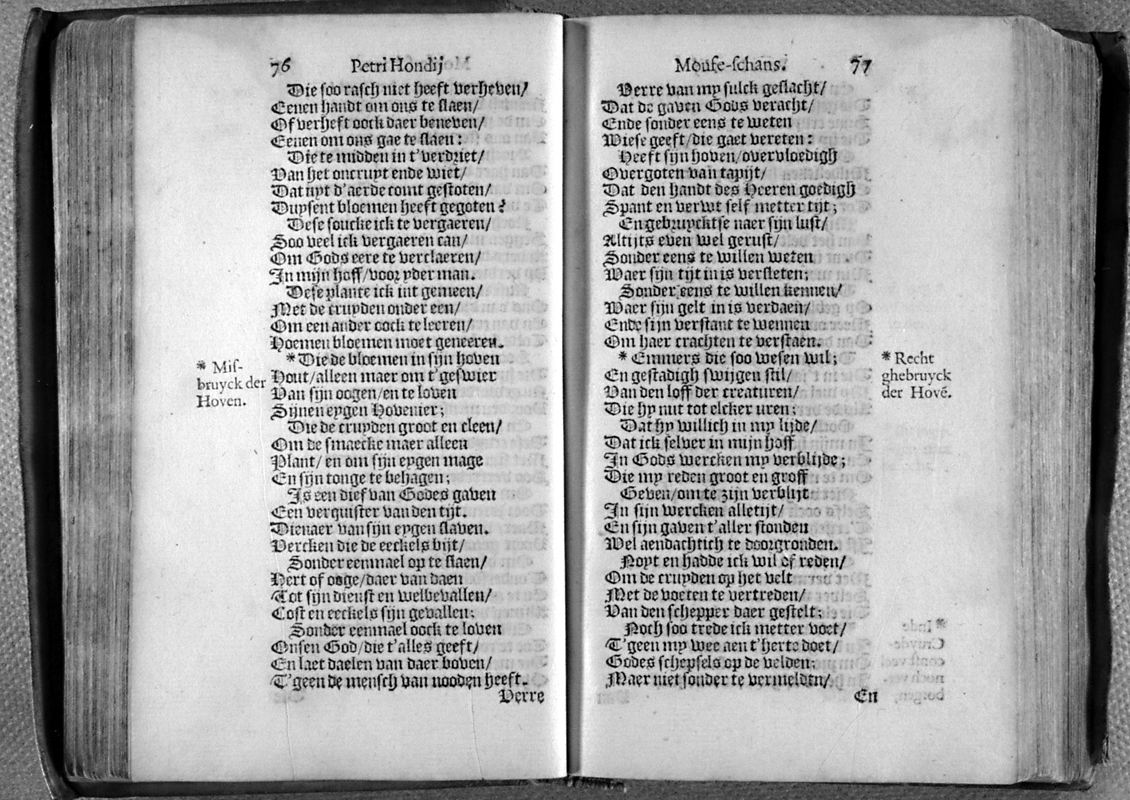 76 Petri Hondij
Die soo rasch niet heeft verheven/
Eenen handt om ons te slaen/
Of verheft oock daer beneven/
Eenen om ons gae te slaen:
Die te midden in t'verdriet/
Van het oncruyt ende wiet/
Dat uyt d'aerde comt gestoten/
Duysent bloemen heeft gegoten?
Dese soucke ick te vergaeren/
Soo veel ick vergaeren can/
Om Gods eere te verclaeren/
In mijn hoff/voor yder man.
Dese plante ick int gemeen/
Met de cruyden onder een/
Om een ander oock te leeren/
Hoemen bloemen moet geneeren.
* Mis-
bruyck der
Hoven.
*Die de bloemen in sijn hoven
Hout/alleen maer om t'geswier
Van sijn oogen/en te loven
Sijnen eygen Hovenier;
Die de cruyden groot en cleen/
Om de smaecke maer alleen
Plant/ en om sijn eygen mage
En sijn tonge te behagen;
Is een dief van Godes gaven
Een verquister van den tijt.
Dienaer van sijn eygen slaven.
Vercken die de eeckels bijt/
Sonder eenmael op te slaen/
Hert of ooge/daer van daen
Tot sijn dienst en welbevallen/
Cost en eeckels sijn gevallen;
Sonder eenmael oock te loven
Onsen God/die t'alles geeft/
En laet daelen van daer boven/
T'geen de mensch van nooden heeft.
Verre
Mouse-schans. 77
Verre van my sulck geslacht/
Dat de gaven Gods veracht/
Ende sonder eens te weten
Wiese geeft/die gaet vereten:
Heeft sijn hoven/overvloedigh
Overgoten van tapijt/
Dat den handt des Heeren goedigh
Spant en verwt self metter tijt;
En gebruycktse naer sijn lust/
Altijts even wel gerust/
Sonder eens te willen weten
Waer sijn tijt in is versleten;
Sonder eens te willen kennen/
Waer sijn gelt in is verdaen/
Ende sijn verstant te wennen
Om haer crachten te verstaen.
* Emmers die soo wesen wil;
En gestadigh swijgen stil/
Van den loff der creaturen/
Die hy nut tot elcker uren;
* Recht
ghebruyck
der Hovē.
Dat hy willich in my lijde/
Dat ick selver in mijn hoff
In Gods wercken my verblijde;
Die my reden groot en groff
Geven/om te zijn verblijt
In sijn wercken alletijt/
En sijn gaven t'aller stonden
Wel aendachtich te doorgronden.
Noyt en hadde ick wil of reden/
Om de cruyden op het velt
Met de voeten te vertreden/
Van den schepper daer gestelt;
Noch soo trede ick metter voet/
T'geen my wee aen t'herte doet/
Godes schepsels op de velden;
Maer niet sonder te vermelden/
En